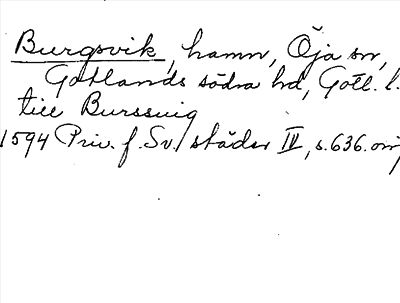 Burgsvik, hamn, Öja sn,
Gotlands södra hd, Gotl. l.
till Burssuig
1594 Priv. f. Sv. städer IV, s. 636. or